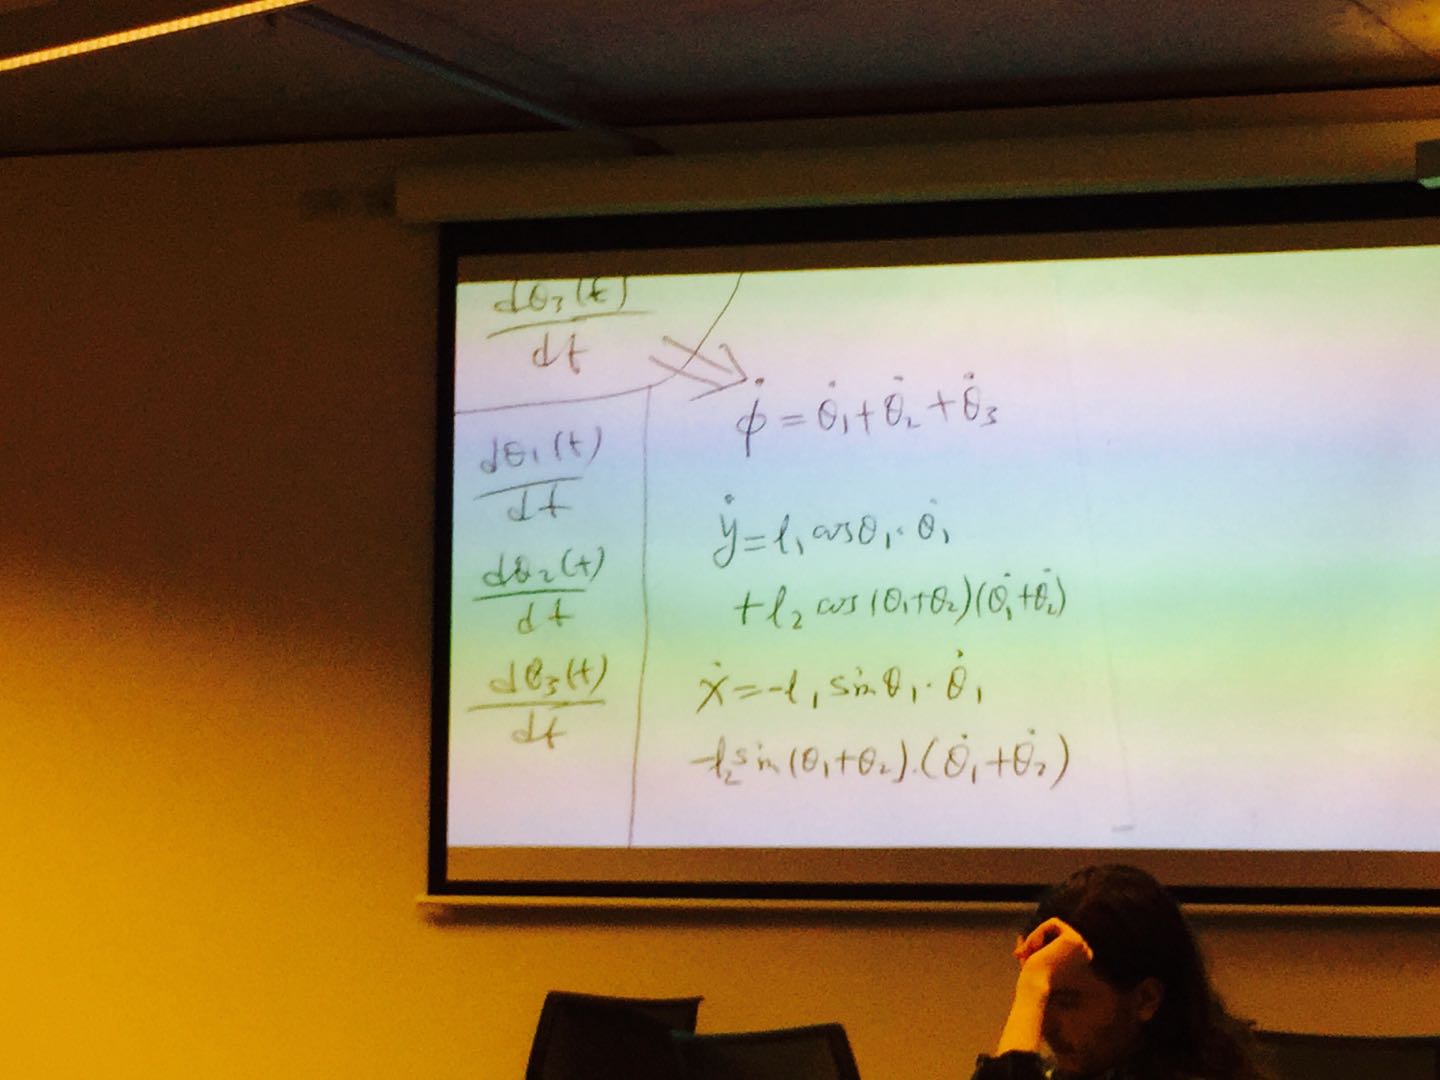 dθ₃(t)
dt
dθ₁(t)
dt
dθ₂(t)
dt
dθ₃(t)
dt
ϕ̇ = θ̇₁ + θ̇₂ + θ̇₃
ẏ = l₁ cosθ₁ · θ̇₁
+ l₂ cos(θ₁+θ₂)(θ̇₁+θ̇₂)
ẋ = -l₁ sinθ₁ · θ̇₁
-l₂ sin(θ₁+θ₂).(θ̇₁+θ̇₂)